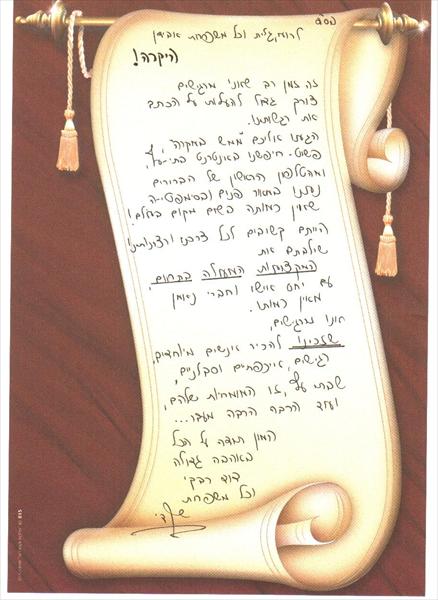 בס"ד
לרועי, גלית וכל משפחת אבידן
היקרה!
זה זמן רב שאני מרגישים
צורך גדול להעלות על הכתב
את רגשותינו.
הגענו אליכם ממש במקרה,
פשוט חיפשנו באינטרנט בתי-עץ,
ומהטלפון הראשון של הברורים
נתקלנו במאור פנים ובסימפטיה
שאין כמותה בשום מקום בעולם!
הייתם קשובים לכל צרכנו ורצונותינו!
שילבתם את
המקצועיות המעולה בתחום,
עם יחס אישי וחברי נאמן
מאין כמותו.
אנו מרגישים,
שזכינו להכיר אנשים מיוחדים,
רגישים, איכפתיים וסבלניים,
שבתי עץ, זו המומחיות שלהם,
ועוד הרבה הרבה מעבר...
המון תודה על הכל
באהבה גדולה
דוד רבקי
וכל משפחת